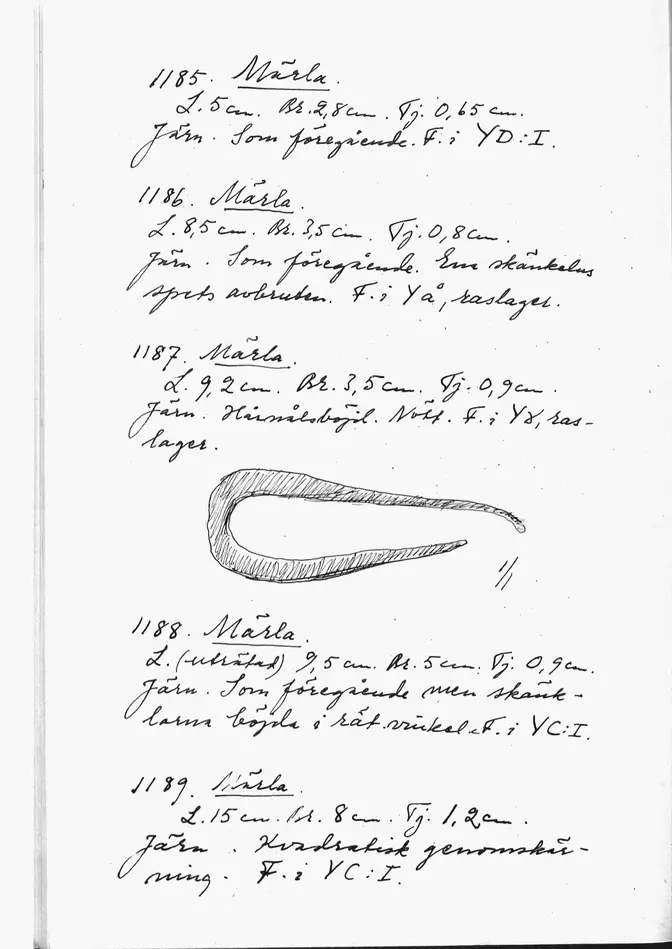 1185. Märla.
L. 5 cm. Br. 2,8 cm. Tj. 0,65 cm.
Järn. Som föregående. F. i YD:I.
1186. Märla.
L. 8,5 cm. Br. 3,5 cm. Tj. 0,8 cm.
Järn. Som föregående. Ena skänkelns
spets avbruten. F. i Yå, raslager.
1187. Märla.
L. 9,2 cm. Br. 3,5 cm. Tj. 0,9 cm.
Järn. Hårnålsböjd. Nött. F. i YX, ras-
lager.
1/1
1188. Märla.
L. (uträtad) 9,5 cm. Br. 5 cm. Tj. 0,9 cm.
Järn. Som föregående men skänk-
larna böjda i rät vinkel. F. i YC:I.
1189. Märla.
L. 15 cm. Br. 8 cm. Tj. 1,2 cm.
Järn. Kvadratisk genomskär-
ning. F. i YC:I.